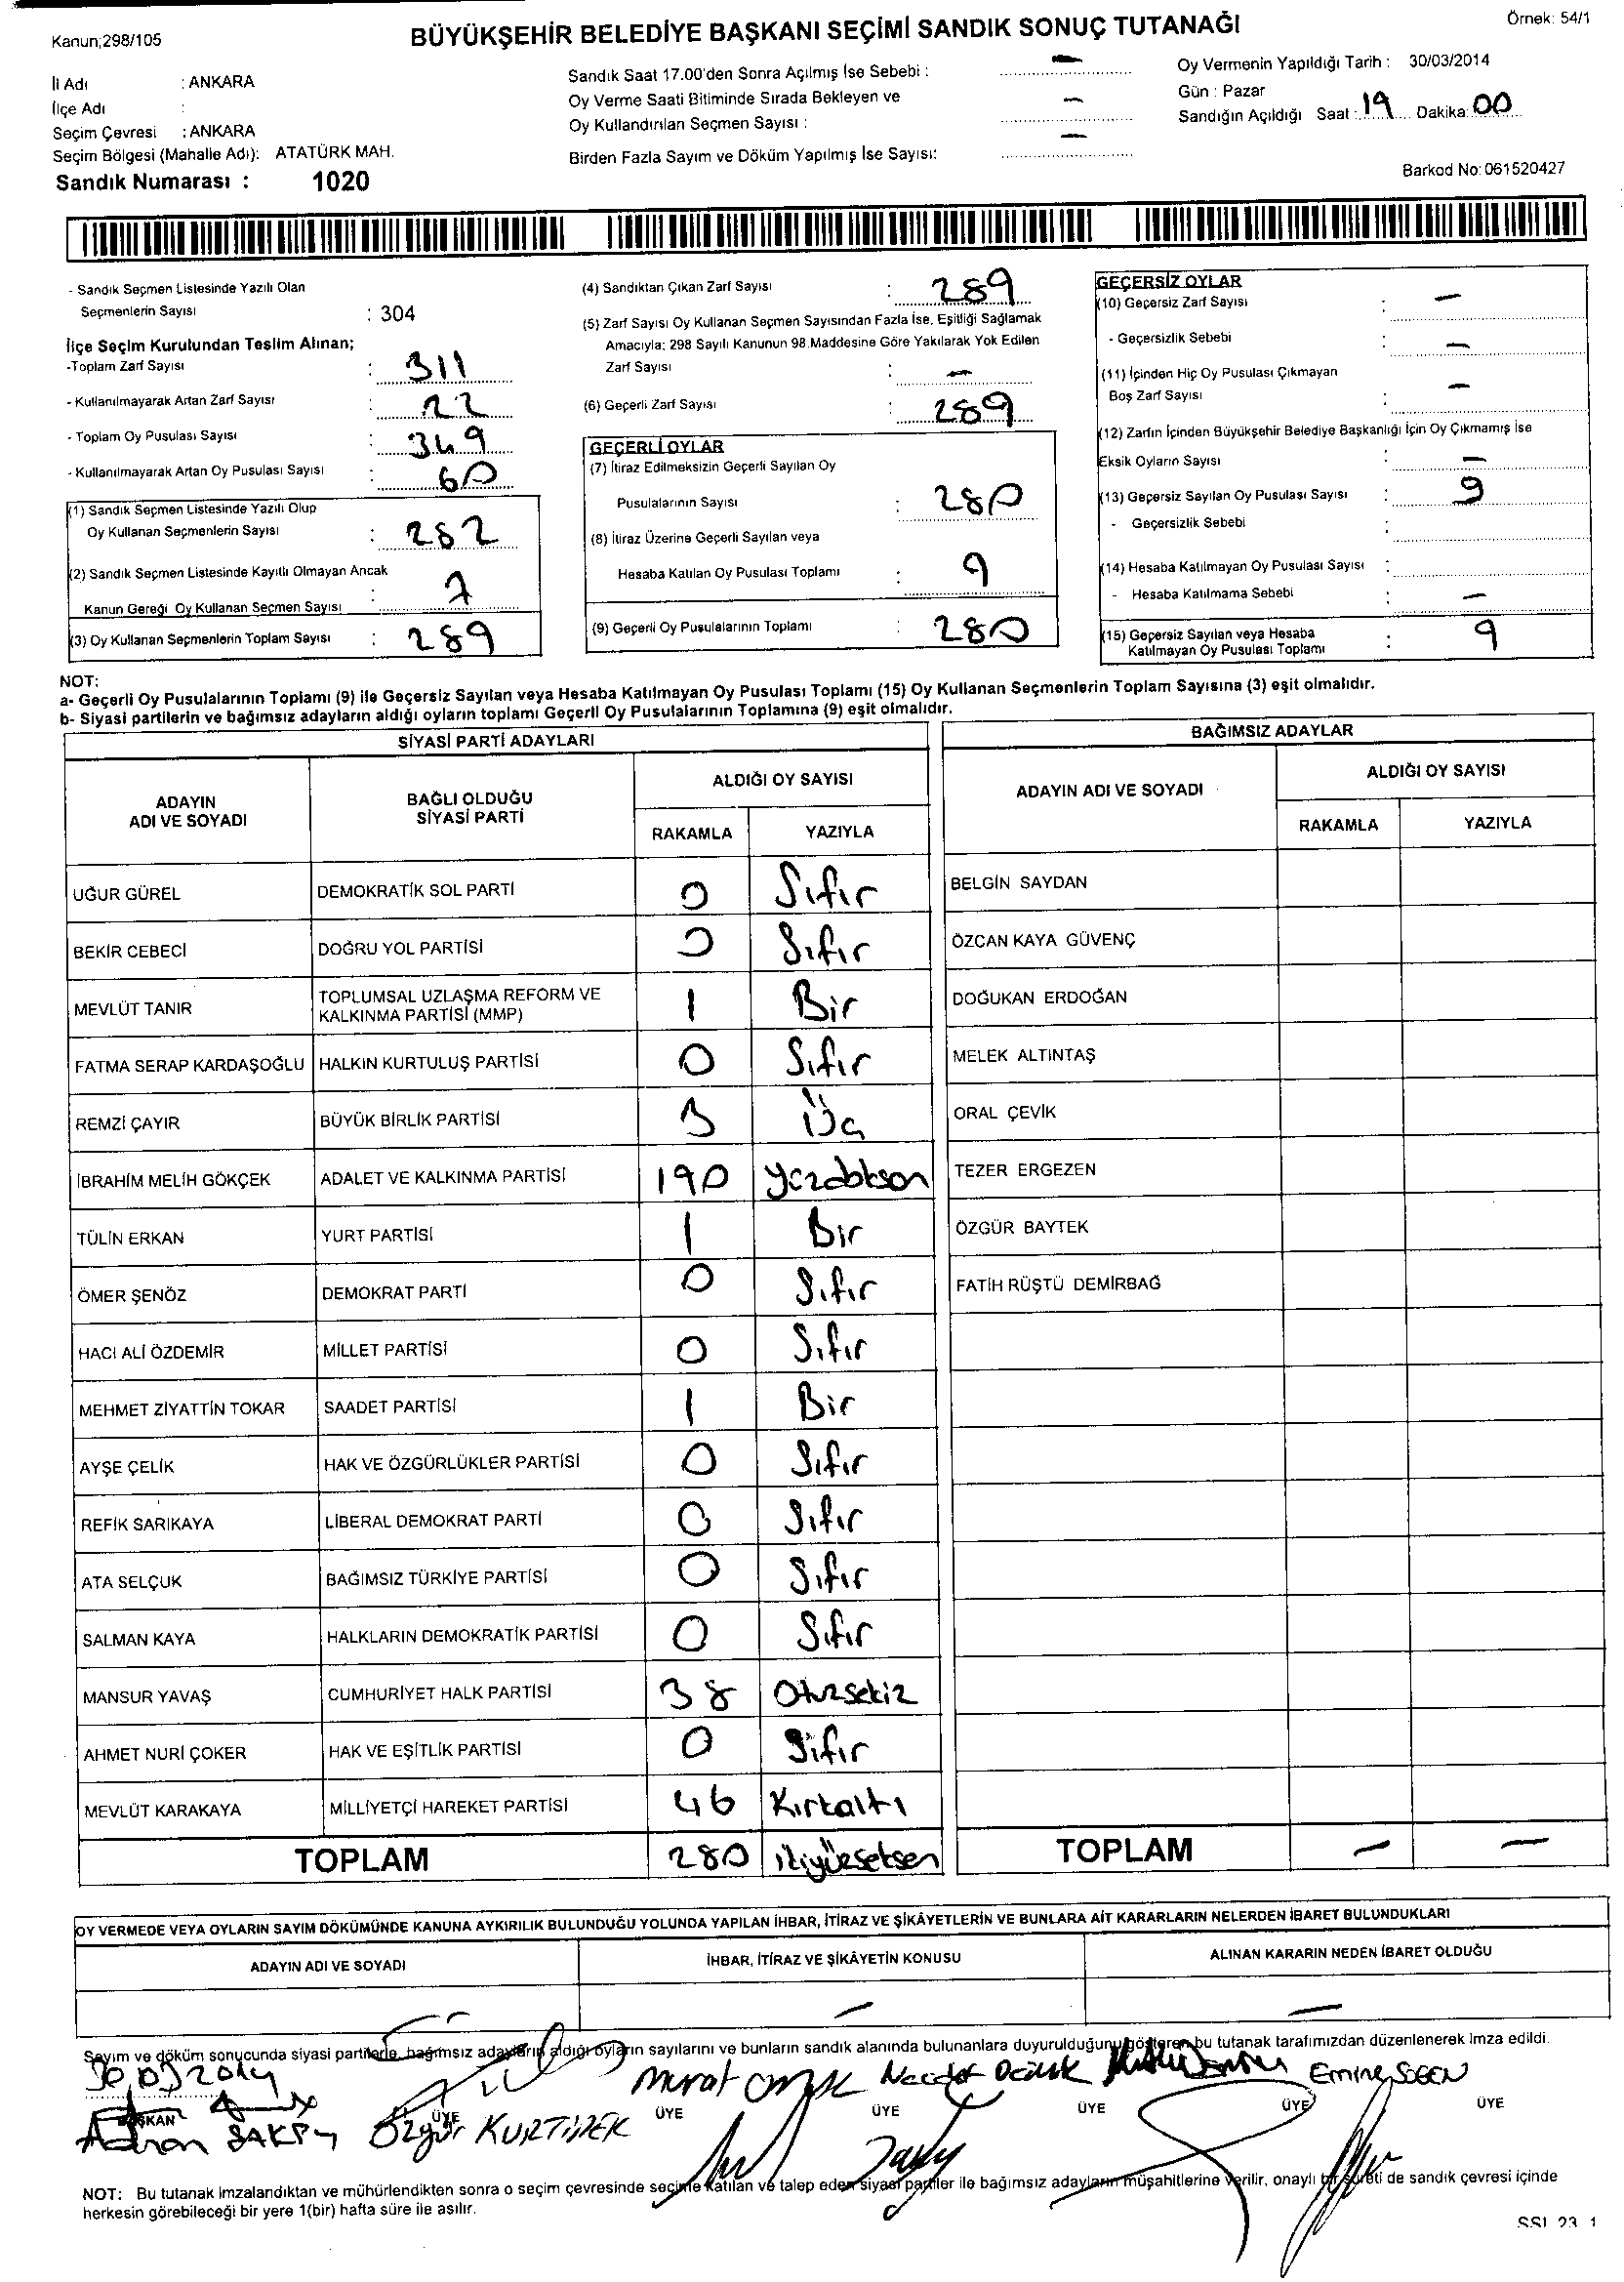 Kanun;298/105
BÜYÜKŞEHİR BELEDİYE BAŞKANI SEÇİMİ SANDIK SONUÇ TUTANAĞI
Örnek: 54/1
İli Adı : ANKARA
İlçe Adı :
Seçim Çevresi : ANKARA
Seçim Bölgesi (Mahalle Adı): ATATÜRK MAH.
Sandık Numarası : 1020
Sandık Saat 17.00'den Sonra Açılmış İse Sebebi : –
Oy Verme Saati Bitiminde Sırada Bekleyen ve
Oy Kullandırılan Seçmen Sayısı : –
Birden Fazla Sayım ve Döküm Yapılmış İse Sayısı: –
Oy Vermenin Yapıldığı Tarih : 30/03/2014
Gün : Pazar
Sandığın Açıldığı Saat : 19 Dakika: 00
Barkod No: 061520427
- Sandık Seçmen Listesinde Yazılı Olan
Seçmenlerin Sayısı : 304
İlçe Seçim Kurulundan Teslim Alınan;
-Toplam Zarf Sayısı : 311
- Kullanılmayarak Artan Zarf Sayısı : 22
- Toplam Oy Pusulası Sayısı : 349
- Kullanılmayarak Artan Oy Pusulası Sayısı : 60
(1) Sandık Seçmen Listesinde Yazılı Olup
Oy Kullanan Seçmenlerin Sayısı : 282
(2) Sandık Seçmen Listesinde Kayıtlı Olmayan Ancak
Kanun Gereği Oy Kullanan Seçmen Sayısı : 7
(3) Oy Kullanan Seçmenlerin Toplam Sayısı : 289
(4) Sandıktan Çıkan Zarf Sayısı : 289
(5) Zarf Sayısı Oy Kullanan Seçmen Sayısından Fazla İse, Eşitliği Sağlamak
Amacıyla; 298 Sayılı Kanunun 98.Maddesine Göre Yakılarak Yok Edilen
Zarf Sayısı : –
(6) Geçerli Zarf Sayısı : 289
GEÇERLİ OYLAR
(7) İtiraz Edilmeksizin Geçerli Sayılan Oy
Pusulalarının Sayısı : 280
(8) İtiraz Üzerine Geçerli Sayılan veya
Hesaba Katılan Oy Pusulası Toplamı : 9
(9) Geçerli Oy Pusulalarının Toplamı : 280
GEÇERSİZ OYLAR
(10) Geçersiz Zarf Sayısı : –
- Geçersizlik Sebebi : –
(11) İçinden Hiç Oy Pusulası Çıkmayan
Boş Zarf Sayısı : –
(12) Zarfın İçinden Büyükşehir Belediye Başkanlığı İçin Oy Çıkmamış İse
Eksik Oyların Sayısı : –
(13) Geçersiz Sayılan Oy Pusulası Sayısı : 9
- Geçersizlik Sebebi :
(14) Hesaba Katılmayan Oy Pusulası Sayısı :
- Hesaba Katılmama Sebebi : –
(15) Geçersiz Sayılan veya Hesaba
Katılmayan Oy Pusulası Toplamı : 9
NOT:
a- Geçerli Oy Pusulalarının Toplamı (9) ile Geçersiz Sayılan veya Hesaba Katılmayan Oy Pusulası Toplamı (15) Oy Kullanan Seçmenlerin Toplam Sayısına (3) eşit olmalıdır.
b- Siyasi partilerin ve bağımsız adayların aldığı oyların toplamı Geçerli Oy Pusulalarının Toplamına (9) eşit olmalıdır.
SİYASİ PARTİ ADAYLARI
ADAYIN ADI VE SOYADI BAĞLI OLDUĞU SİYASİ PARTİ ALDIĞI OY SAYISI
RAKAMLA YAZIYLA
UĞUR GÜREL DEMOKRATİK SOL PARTİ 0 Sıfır
BEKİR CEBECİ DOĞRU YOL PARTİSİ 0 Sıfır
MEVLÜT TANIR TOPLUMSAL UZLAŞMA REFORM VE KALKINMA PARTİSİ (MMP) 1 Bir
FATMA SERAP KARDAŞOĞLU HALKIN KURTULUŞ PARTİSİ 0 Sıfır
REMZİ ÇAYIR BÜYÜK BİRLİK PARTİSİ 3 Üç
İBRAHİM MELİH GÖKÇEK ADALET VE KALKINMA PARTİSİ 190 yüzdoksan
TÜLİN ERKAN YURT PARTİSİ 1 Bir
ÖMER ŞENÖZ DEMOKRAT PARTİ 0 Sıfır
HACI ALİ ÖZDEMİR MİLLET PARTİSİ 0 Sıfır
MEHMET ZİYATTİN TOKAR SAADET PARTİSİ 1 Bir
AYŞE ÇELİK HAK VE ÖZGÜRLÜKLER PARTİSİ 0 Sıfır
REFİK SARIKAYA LİBERAL DEMOKRAT PARTİ 0 Sıfır
ATA SELÇUK BAĞIMSIZ TÜRKİYE PARTİSİ 0 Sıfır
SALMAN KAYA HALKLARIN DEMOKRATİK PARTİSİ 0 Sıfır
MANSUR YAVAŞ CUMHURİYET HALK PARTİSİ 38 Otuzsekiz
AHMET NURİ ÇOKER HAK VE EŞİTLİK PARTİSİ 0 Sıfır
MEVLÜT KARAKAYA MİLLİYETÇİ HAREKET PARTİSİ 46 Kırkaltı
TOPLAM 280 ikiyüzseksen
BAĞIMSIZ ADAYLAR
ADAYIN ADI VE SOYADI ALDIĞI OY SAYISI
RAKAMLA YAZIYLA
BELGİN SAYDAN
ÖZCAN KAYA GÜVENÇ
DOĞUKAN ERDOĞAN
MELEK ALTINTAŞ
ORAL ÇEVİK
TEZER ERGEZEN
ÖZGÜR BAYTEK
FATİH RÜŞTÜ DEMİRBAĞ
TOPLAM – –
OY VERMEDE VEYA OYLARIN SAYIM DÖKÜMÜNDE KANUNA AYKIRILIK BULUNDUĞU YOLUNDA YAPILAN İHBAR, İTİRAZ VE ŞİKÂYETLERİN VE BUNLARA AİT KARARLARIN NELERDEN İBARET BULUNDUKLARI
ADAYIN ADI VE SOYADI İHBAR, İTİRAZ VE ŞİKÂYETİN KONUSU ALINAN KARARIN NEDEN İBARET OLDUĞU
– – –
Sayım ve döküm sonucunda siyasi partilerle, bağımsız adayların aldığı oyların sayılarını ve bunların sandık alanında bulunanlara duyurulduğunu gösteren bu tutanak tarafımızdan düzenlenerek imza edildi.
30.03.2014
Murat Necdet Emine
BAŞKAN ÜYE ÜYE ÜYE ÜYE ÜYE ÜYE
Adnan Özgür
NOT: Bu tutanak imzalandıktan ve mühürlendikten sonra o seçim çevresinde seçime katılan ve talep eden siyasi partiler ile bağımsız adayların müşahitlerine verilir, onaylı bir sureti de sandık çevresi içinde
herkesin görebileceği bir yere 1(bir) hafta süre ile asılır.